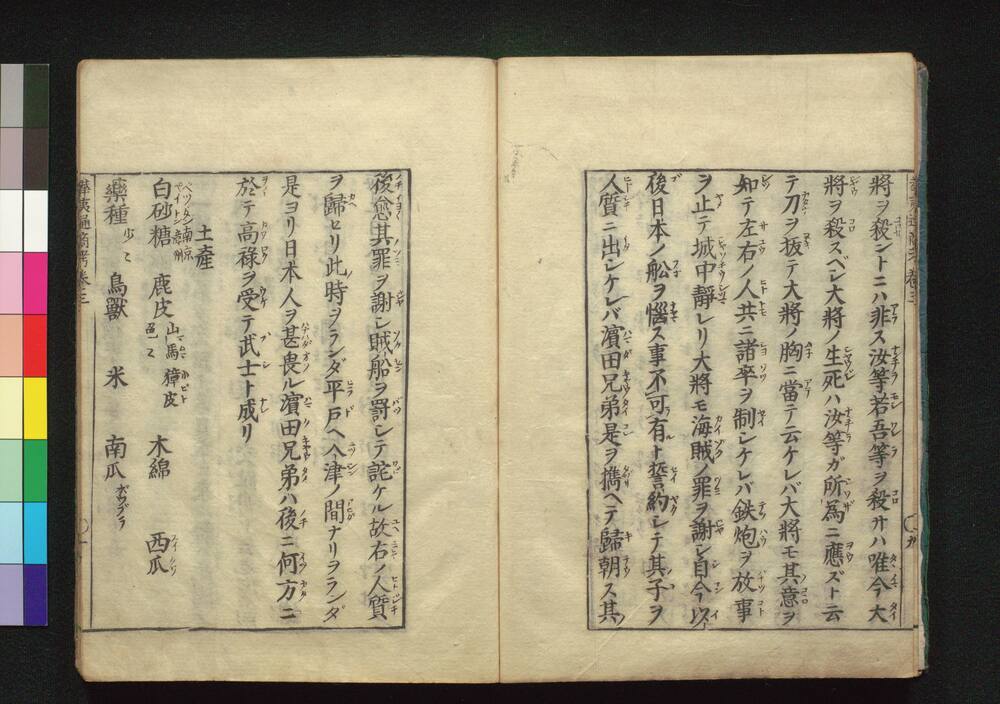 將ヲ殺ントニハ非ス汝等若吾等ヲ殺サハ唯今大
將ヲ殺スベシ大將ノ生死ハ汝等ガ所為ニ應ズト云
テ刀ヲ扳テ大將ノ胸ニ當テ云ケレバ大將モ其意ヲ
知テ左右ノ人共ニ諸卒ヲ制シケレバ鉄炮ヲ放事
ヲ止テ城中靜レリ大將モ海賊ノ罪ヲ謝シ自今以
後日本ノ舩ヲ惱ス事不可有ト誓約シテ其子ヲ
人質ニ出シケレバ濵田兄弟是ヲ擕ヘテ歸朝ス其
後愈其罪ヲ謝シ賊船ヲ罰シテ詫ケル故右ノ人質
ヲ歸セリ此時ヲランダ平戸ヘ入津ノ間ナリヲランダ
是ヨリ日本人ヲ甚畏ル濵田兄弟ハ後ニ何方ニ
於テ髙祿ヲ受テ武士ト成リ
土産
白砂糖 鹿皮 山馬 獐皮 木綿 西瓜
藥種 少々 鳥獸 米 南瓜 ボウブラ
華夷通商考卷三